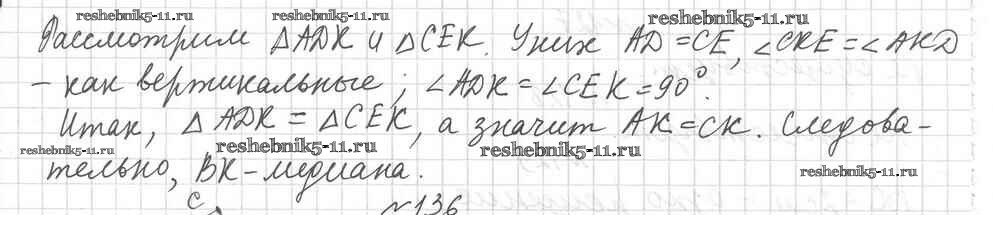 reshebnik5-11.ru reshebnik5-11.ru reshebnik5-11.ru
Рассмотрим △ADK и △CEK. У них AD = CE, ∠CKE = ∠AKD
– как вертикальные; ∠ADK = ∠CEK = 90°.
Итак, △ADK = △CEK, а значит AK = CK. Следова-
reshebnik5-11.ru reshebnik5-11.ru reshebnik5-11.ru
тельно, BK – медиана.
reshebnik5-11.ru
C
№136